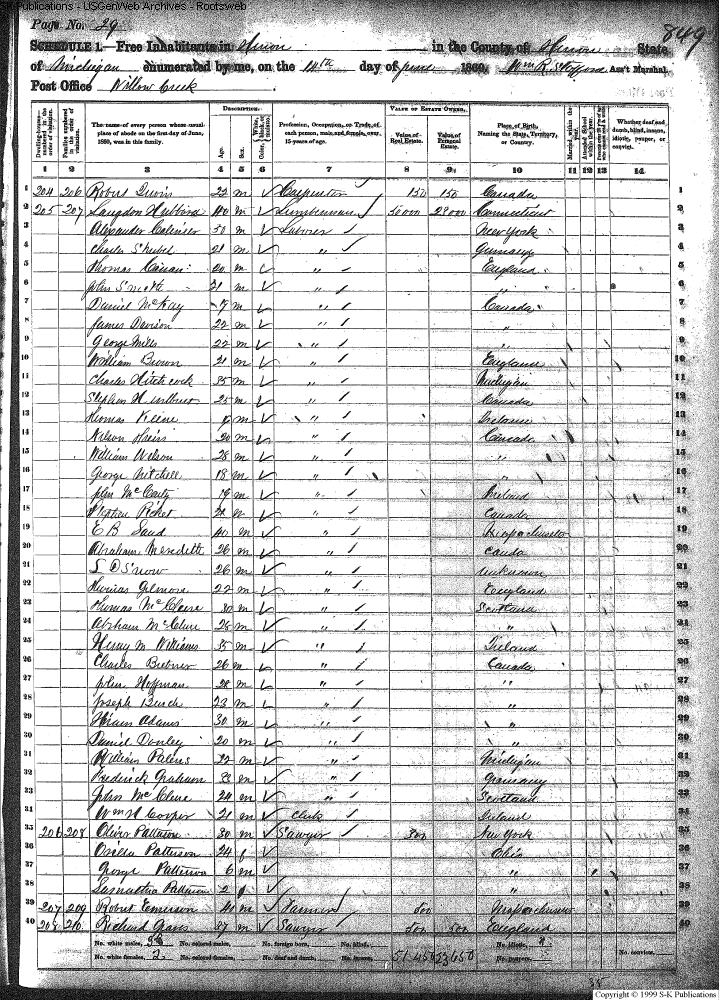 S-K Publications - USGenWeb Archives - Rootsweb
Page No. 29
849
SCHEDULE 1.—Free Inhabitants in Huron in the County of Huron State
of Michigan enumerated by me, on the 14th day of June 1860. Wm R. Stafford Ass't Marshal.
Post Office Willow Creek
Dwelling-houses—numbered in the order of visitation. Families numbered in the order of visitation. The name of every person whose usual place of abode on the first day of June, 1860, was in this family. DESCRIPTION. Age. Sex. Color, White, black, or mulatto. Profession, Occupation, or Trade of each person, male and female, over 15 years of age. VALUE OF ESTATE OWNED. Value of Real Estate. Value of Personal Estate. Place of Birth, Naming the State, Territory, or Country. Married within the year. Attended School within the year. Whether deaf and dumb, blind, insane, idiotic, pauper, or convict.
1 2 3 4 5 6 7 8 9 10 11 12 13 14
1 204 206 Robert 22 m Carpenter 150 150 Canada 1
2 205 207 Langdon Hubbard 40 m Lumberman 50000 23000 Connecticut 2
3 Alexander 50 m Laborer New York 3
4 Charles 21 m " Germany 4
5 Thomas 20 m " England 5
6 John Smith 21 m " " 6
7 Daniel McKay m " Canada 7
8 James Davison 22 m " " 8
9 George Mills 22 m " " 9
10 William Brown 21 m " England 10
11 Charles Hitchcock 35 m " Michigan 11
12 Stephen 25 m " Canada 12
13 Thomas Keene m " Ireland 13
14 Nelson 20 m " Canada 14
15 William Wilson 28 m " " 15
16 George Mitchell 18 m " " 16
17 John McCarty 19 m " Ireland 17
18 m " Canada 18
19 E B 40 m " Massachusetts 19
20 Abraham Meredith 26 m " Canada 20
21 Snow 26 m " unknown 21
22 Thomas Gilmore 22 m " England 22
23 Thomas McClure 30 m " Scotland 23
24 Abraham McClure 28 m " " 24
25 Henry M Williams 35 m " Ireland 25
26 Charles 26 m " Canada 26
27 John Hoffman 28 m " " 27
28 Joseph 23 m " " 28
29 Hiram Adams 30 m " " 29
30 Daniel Donley 20 m " " 30
31 William 22 m " Michigan 31
32 Frederick Graham 32 m " Germany 32
33 John McClure 24 m " Scotland 33
34 Wm H Cooper 21 m Clerk Ireland 34
35 206 208 Oliver Patterson 30 m Sawyer 300 New York 35
36 Patterson 24 f Ohio 36
37 George Patterson 6 m " 37
38 Samantha Patterson 2 f " 38
39 207 209 Robert Emerson 40 m Farmer 500 Massachusetts 39
40 208 210 Richard 37 m Sawyer 500 500 England 40
No. white males, 38 No. colored males, No. foreign born, No. blind, No. idiotic,
No. white females, 2 No. colored females, No. deaf and dumb, No. insane, 51450 23650 No. paupers, No. convicts,
38
Copyright © 1999 S-K Publications